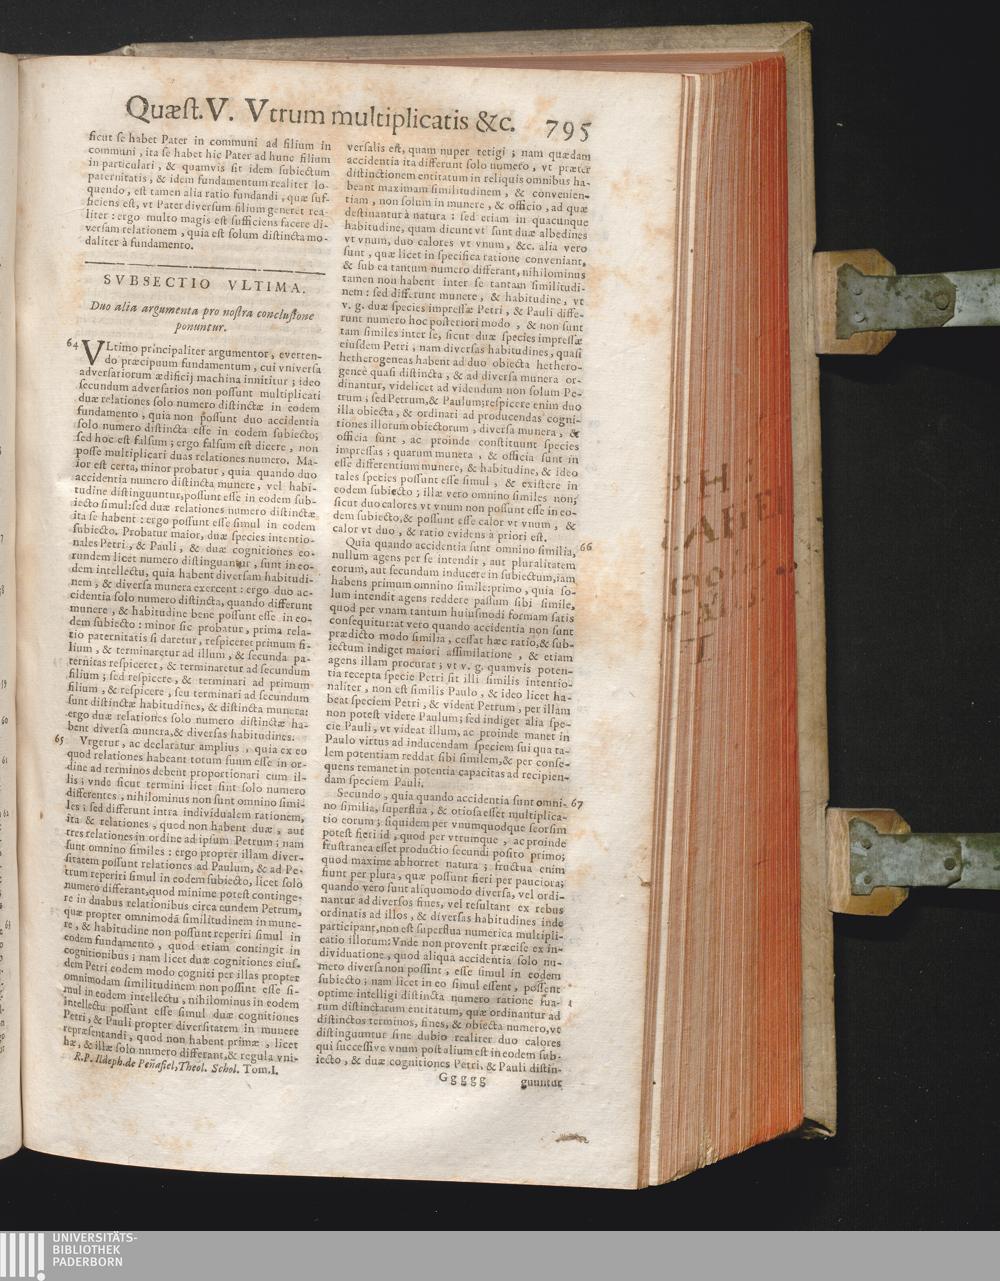 Quæst. V. Vtrum multiplicatis &c. 795
ficut se habet Pater in communi ad filium in
communi, ita se habet hic Pater ad hunc filium
in particulari, & quamvis sit idem subiectum
paternitatis, & idem fundamentum realiter lo-
quendo, est tamen alia ratio fundandi, quæ suf-
ficiens est, vt Pater diversum filium generet rea-
liter: ergo multo magis est sufficiens facere di-
versam relationem, quia est solum distincta mo-
daliter à fundamento.
SVBSECTIO VLTIMA.
Duo alia argumenta pro nostra conclusione
ponuntur.
64 VLtimo principaliter argumentor, everten-
do præcipuum fundamentum, cui vniversa
adversariorum ædificij machina innititur; ideo
secundum adversarios non possunt multiplicati
duæ relationes solo numero distinctæ in eodem
fundamento, quia non possunt duo accidentia
solo numero distincta esse in eodem subiecto;
sed hoc est falsum; ergo falsum est dicere, non
posse multiplicari duas relationes numero. Ma-
ior est certa, minor probatur, quia quando duo
accidentia numero distincta munere, vel habi-
tudine distinguuntur, possunt esse in eodem sub-
iecto simul: sed duæ relationes numero distinctæ
ita se habent: ergo possunt esse simul in eodem
subiecto. Probatur maior, duæ species intentio-
nales Petri, & Pauli, & duæ cognitiones eo-
rundem licet numero distinguantur, sunt in eo-
dem intellectu, quia habent diversam habitudi-
nem, & diversa munera exercent: ergo duo ac-
cidentia solo numero distincta, quando differunt
munere, & habitudine bene possunt esse in eo-
dem subiecto: minor sic probatur, prima rela-
tio paternitatis si daretur, respiceret primum fi-
lium, & terminaretur ad illum, & secunda pa-
ternitas respiceret, & terminaretur ad secundum
filium; sed respicere, & terminari ad primum
filium, & respicere, seu terminari ad secundum
sunt distinctæ habitudines, & distincta munera:
ergo duæ relationes solo numero distinctæ ha-
bent diversa munera, & diversas habitudines.
65 Vrgetur, ac declaratur amplius, quia ex eo
quod relationes habeant totum suum esse in or-
dine ad terminos debent proportionari cum il-
lis; vnde sicut termini licet sint solo numero
differentes, nihilominus non sunt omnino simi-
les; sed differunt intra individualem rationem,
ita & relationes, quod non habent duæ, aut
tres relationes in ordine ad ipsum Petrum; nam
sunt omnino similes: ergo propter illam diver-
sitatem possunt relationes ad Paulum, & ad Pe-
trum reperiri simul in eodem subiecto, licet solo
numero differant, quod minime potest continge-
re in duabus relationibus circa eundem Petrum,
quæ propter omnimodã similitudinem in mune-
re, & habitudine non possunt reperiri simul in
eodem fundamento, quod etiam contingit in
cognitionibus; nam licet duæ cognitiones eius-
dem Petri eodem modo cogniti per illas propter
omnimodam similitudinem non possint esse si-
mul in eodem intellectu, nihilominus in eodem
intellectu possunt esse simul duæ cognitiones
Petri, & Pauli propter diversitatem in munere
repræsentandi, quod non habent primæ, licet
hæ, & illæ solo numero differant, & regula vni-
R.P. Ildeph. de Peñafiel, Theol. Schol. Tom.I.
versalis est, quam nuper tetigi; nam quædam
accidentia ita differunt solo numero, vt præter
distinctionem entitatum in reliquis omnibus ha-
beant maximam similitudinem, & convenien-
tiam, non solum in munere, & officio, ad quæ
destinantur à natura: sed etiam in quacunque
habitudine, quam dicunt vt sunt duæ albedines
vt vnum, duo calores vt vnum, &c. alia vero
sunt, quæ licet in specifica ratione conveniant,
& sub ea tantum numero differant, nihilominus
tamen non habent inter se tantam similitudi-
nem: sed differunt munere, & habitudine, vt
v. g. duæ species impressæ Petri, & Pauli diffe-
runt numero hoc posteriori modo, & non sunt
tam similes inter se, sicut duæ species impressæ
eiusdem Petri, nam diversas habitudines, quasi
hetherogeneas habent ad duo obiecta hethero-
geneè quasi distincta, & ad diversa munera or-
dinantur, videlicet ad videndum non solum Pe-
trum; sed Petrum, & Paulum; respicere enim duo
illa obiecta, & ordinari ad producendas cogni-
tiones illorum obiectorum, diversa munera, &
officia sunt, ac proinde constituunt species
impressas; quarum munera, & officia sunt in
esse differentium munere, & habitudine, & ideo
tales species possunt esse simul, & existere in
eodem subiecto; illæ vero omnino similes non;
sicut duo calores vt vnum non possunt esse in eo-
dem subiecto, & possunt esse calor vt vnum, &
calor vt duo, & ratio evidens à priori est.
Quia quando accidentia sunt omnino similia, 66
nullum agens per se intendit, aut pluralitatem
eorum, aut secundum inducere in subiectum, iam
habens primum omnino simile: primo, quia so-
lum intendit agens reddere passum sibi simile,
quod per vnam tantum huiusmodi formam satis
consequitur: at vero quando accidentia non sunt
prædicto modo similia, cessat hæc ratio, & sub-
iectum indiget maiori assimilatione, & etiam
agens illam procurat; vt v. g. quamvis poten-
tia recepta specie Petri sit illi similis intentio-
naliter, non est similis Paulo, & ideo licet ha-
beat speciem Petri, & videat Petrum, per illam
non potest videre Paulum; sed indiget alia spe-
cie Pauli, vt videat illum, ac proinde manet in
Paulo virtus ad inducendam speciem sui qua ta-
lem potentiam reddat sibi similem, & per conse-
quens remanet in potentia capacitas ad recipien-
dam speciem Pauli.
Secundo, quia quando accidentia sunt omni- 67
no similia, superflua, & otiosa esset multiplica-
tio eorum; siquidem per vnumquodque seorsim
potest fieri id, quod per vtrumque, ac proinde
frustranea esset productio secundi posito primo;
quod maxime abhorret natura; fructua enim
fiunt per plura, quæ possunt fieri per pauciora;
quando vero sunt aliquomodo diversa, vel ordi-
nantur ad diversos fines, vel resultant ex rebus
ordinatis ad illos, & diversas habitudines inde
participant, non est superflua numerica multipli-
catio illorum: Vnde non provenit præcise ex in-
dividuatione, quod aliqua accidentia solo nu-
mero diversa non possint, esse simul in eodem
subiecto; nam licet in eo simul essent, possent
optime intelligi distincta numero ratione sua-
rum distinctarum entitatum, quæ ordinantur ad
distinctos terminos, fines, & obiecta numero, vt
distinguuntur sine dubio realiter duo calores
qui successive vnum post alium est in eodem sub-
iecto, & duæ cognitiones Petri, & Pauli distin-
Ggggg guuntur
UNIVERSITÄTS-
BIBLIOTHEK
PADERBORN